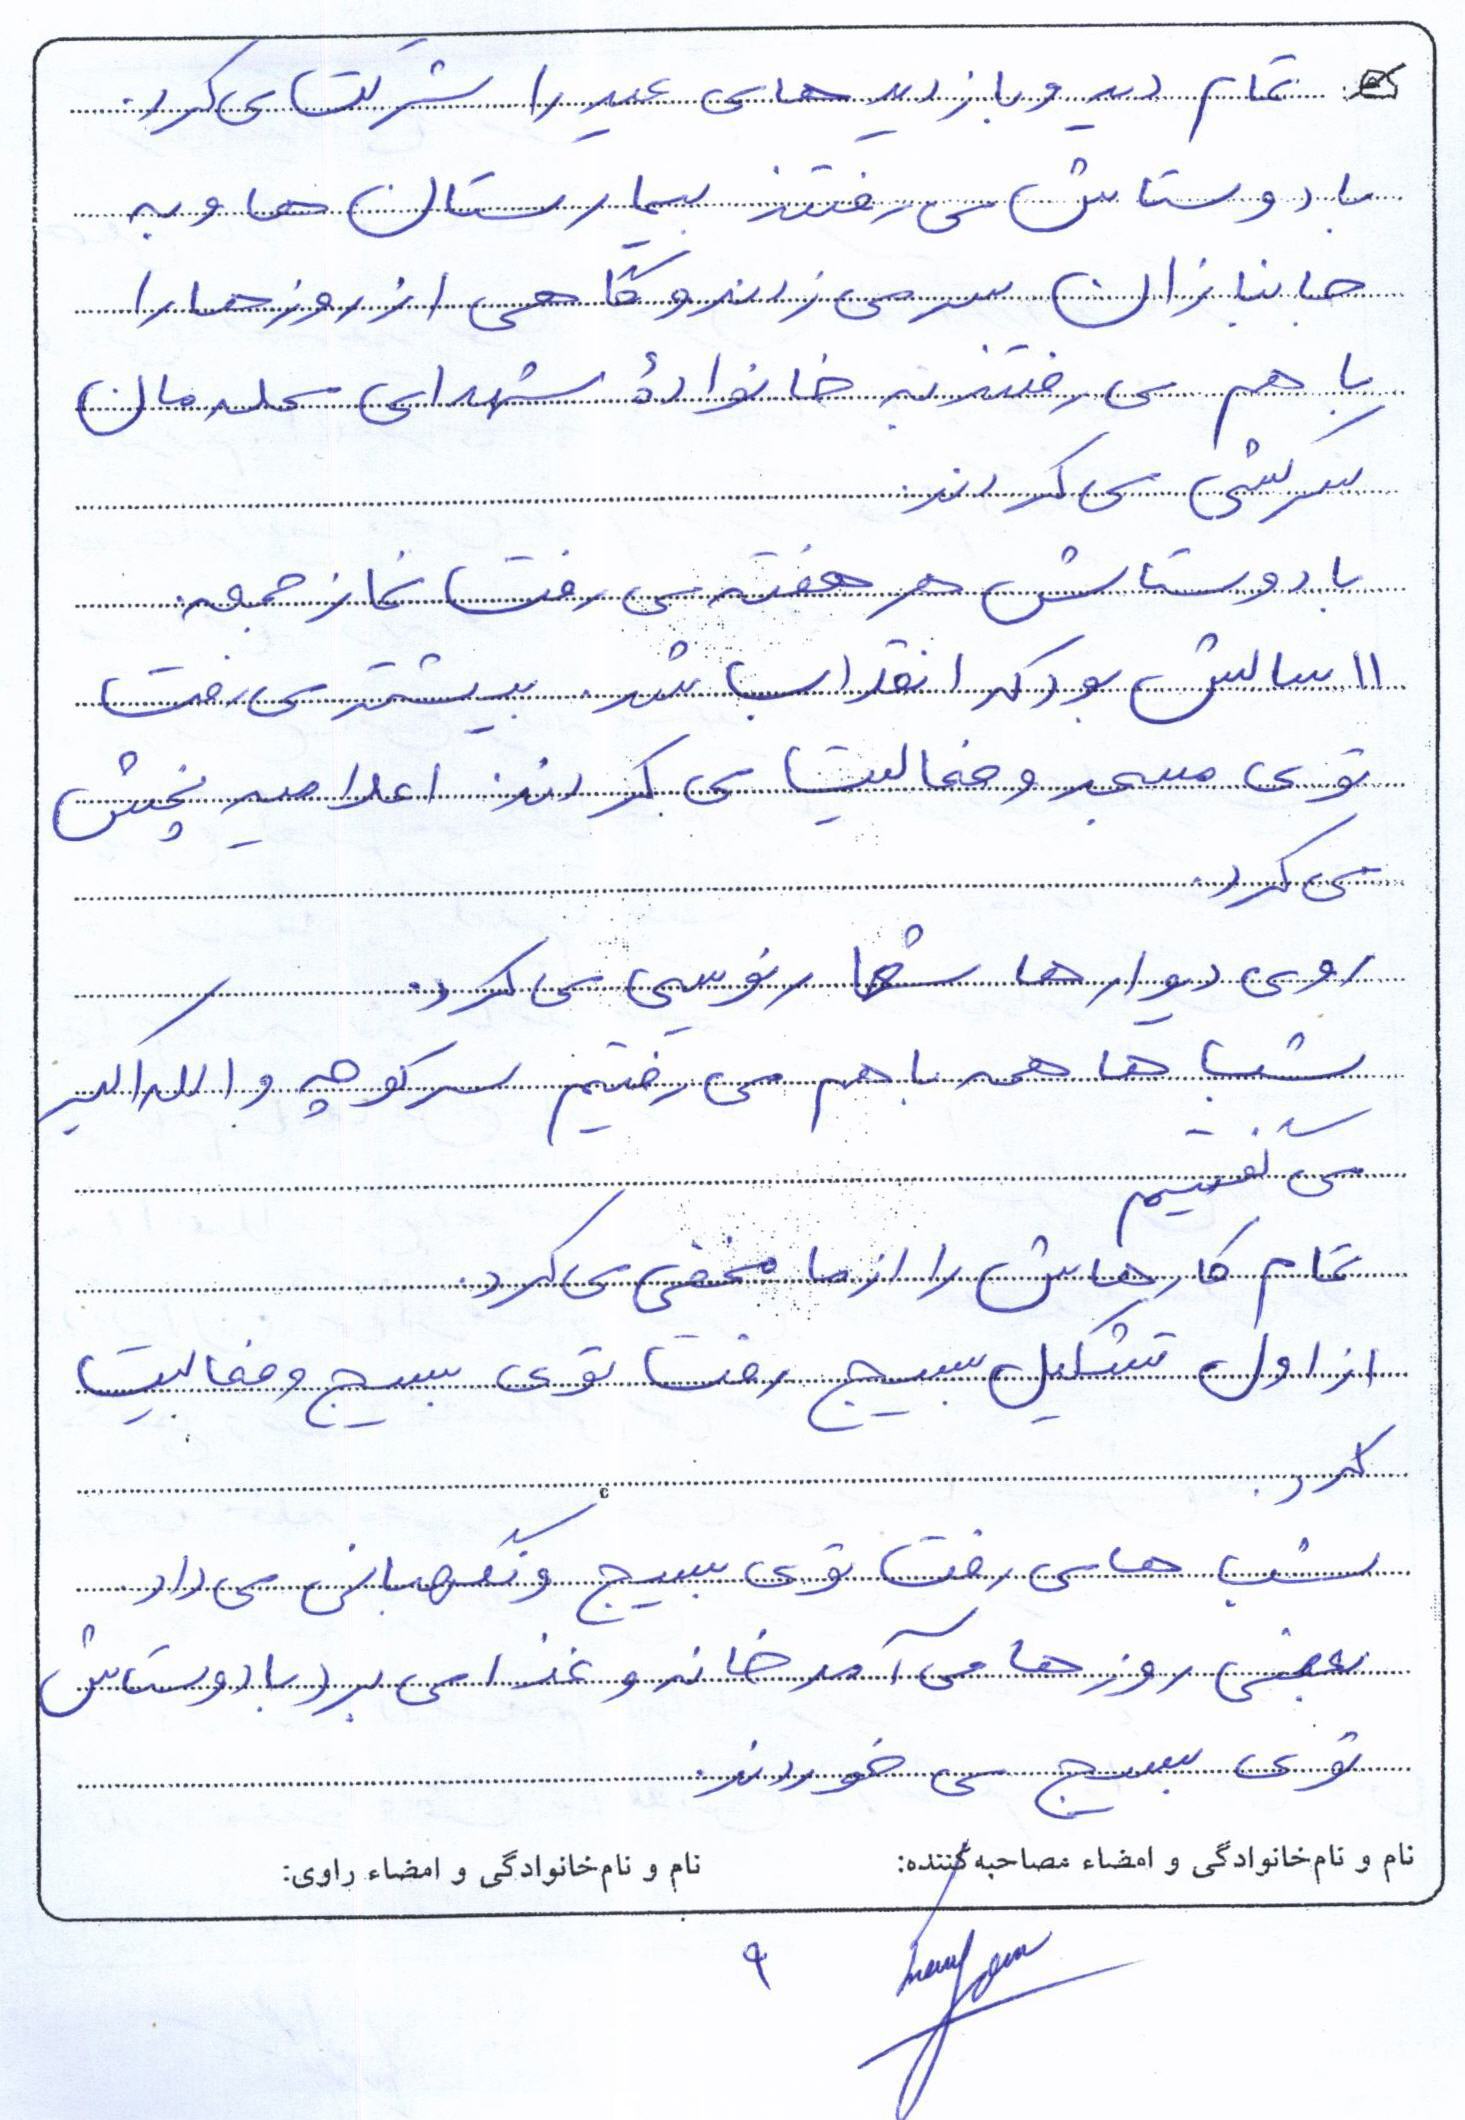 تمام دید و بازدیدهای عید را شرکت می کرد.
با دوستاش می رفتند بیمارستان ها و به
جانبازان سر می زدند و گاهی از روزها را
با هم می رفتند به خانوادهٔ شهدای محله مان
سرکشی می کردند.
با دوستاش هر هفته می رفت نماز جمعه.
۱۱ سالش بود که انقلاب شد. بیشتر می رفت
توی مسجد و فعالیت می کردند. اعلامیه پخش
می کرد.
روی دیوارها شعار نویسی می کرد.
شب ها همه با هم می رفتیم سر کوچه و الله اکبر
می گفتیم
تمام کارهاش را از ما مخفی می کرد.
از اول تشکیل بسیج رفت توی بسیج و فعالیت
کرد.
شب ها می رفت توی بسیج و نگهبانی می داد.
بعضی روزها می آمد خانه و غذا می برد با دوستاش
توی بسیج می خوردند.
نام و نام خانوادگی و امضاء مصاحبه کننده: نام و نام خانوادگی و امضاء راوی:
۹